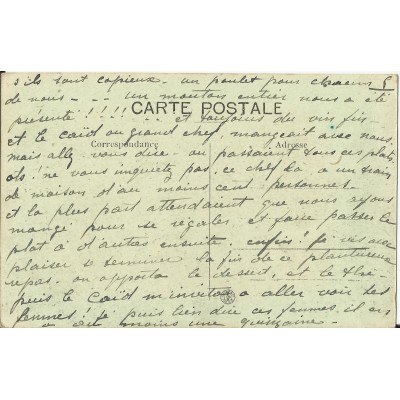 s'ils sont copieux - un poulet pour chacun 5
de nous - - - un mouton entier nous a été
présenté !!!! - - et toujours du vin fin -
CARTE POSTALE
et le caïd ou grand chef, mangeait avec nous,
Correspondance
Adresse
mais allez vous dire - où passaient tous ces plats
ne vous inquiétez pas, ce chef là a un train
de maison d'au moins cent personnes -
et la plus part attendaient que nous ayons
mangé pour se régaler et faire passer le
plat à d'autres ensuite. enfin! je vis avec
plaisir se terminer la fin de ce plantureux
repas. on apporta le dessert, et le thé -
puis le Caïd m'invita à aller voir ses
femmes! je puis bien dire ces femmes, il en
a au moins une quinzaine -